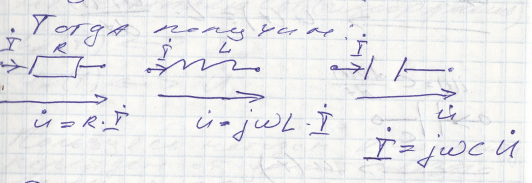 Тогда получим:
İ R İ L İ
U̇ = R · İ U̇ = jωL · İ U̇
İ = jωC U̇